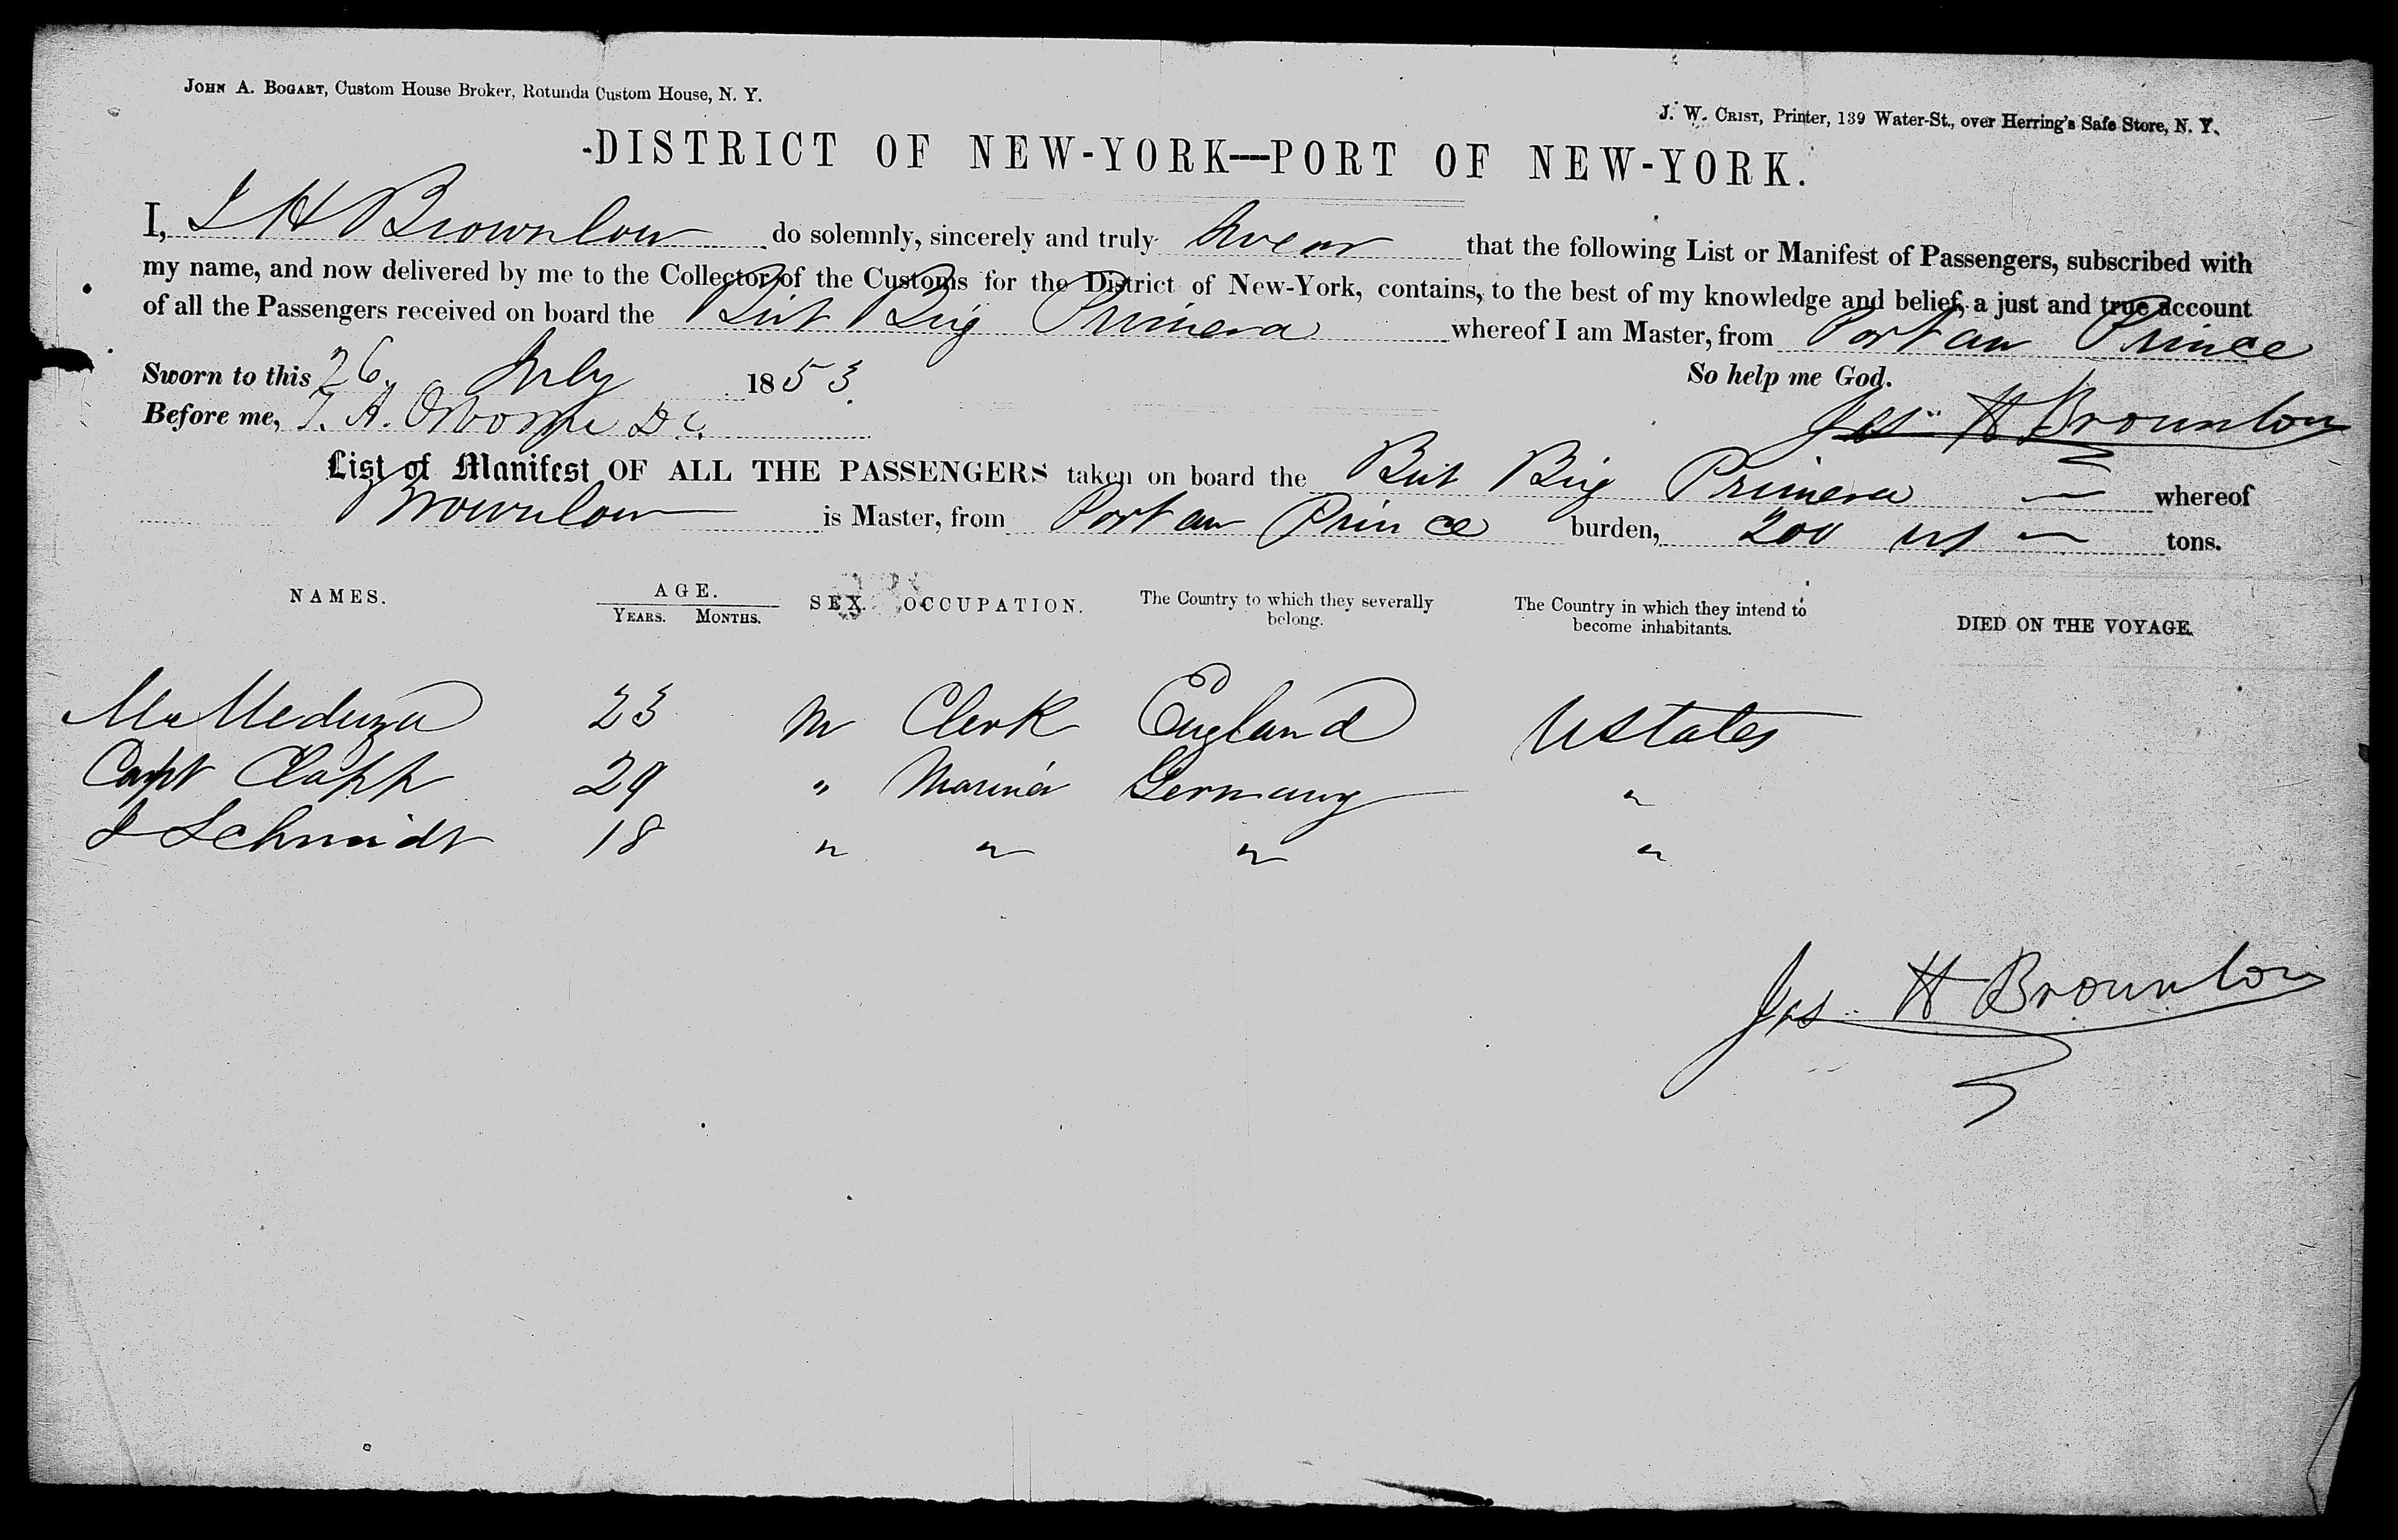 JOHN A. BOGART, Custom House Broker, Rotunda Custom House, N. Y.
J. W. CRIST, Printer, 139 Water-St., over Herring's Safe Store, N. Y.
DISTRICT OF NEW-YORK—PORT OF NEW-YORK.
I, J H Brownlow do solemnly, sincerely and truly swear that the following List or Manifest of Passengers, subscribed with
my name, and now delivered by me to the Collector of the Customs for the District of New-York, contains, to the best of my knowledge and belief, a just and true account
of all the Passengers received on board the Brit Brig Primera whereof I am Master, from Port au Prince
Sworn to this 26 July 1853. So help me God.
Before me, Jas H Brownlow
List of Manifest OF ALL THE PASSENGERS taken on board the Brit Brig Primera — whereof
Brownlow is Master, from Port au Prince burden, 200 — tons.
NAMES. AGE. YEARS. MONTHS. SEX. OCCUPATION. The Country to which they severally belong. The Country in which they intend to become inhabitants. DIED ON THE VOYAGE.
Mr 23 M Clerk England U States
Capt Clapp 29 " Mariner Germany "
J Schmidt 18 " " " "
Jas H Brownlow